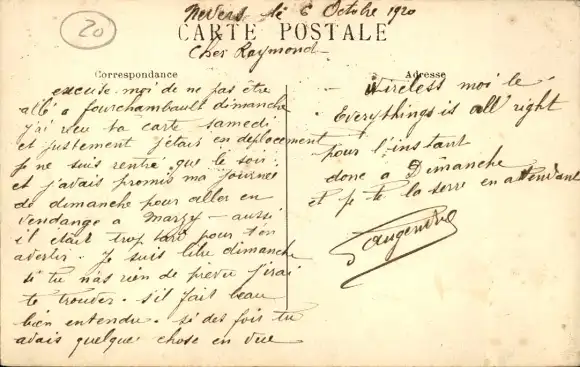 20
Nevers le 6 Octobre 1920
CARTE POSTALE
Cher Raymond
Correspondance
excuse-moi de ne pas être
allé a fourchambault dimanche
j'ai reçu ta carte samedi
et justement j'étais en déplacement
je ne suis rentré que le soir
et j'avais promis ma journée
de dimanche pour aller en
vendange a Marzy – aussi
il était trop tard pour t'en
avertir. Je suis libre dimanche
si tu n'as rien de prévu j'irai
te trouver. s'il fait beau
bien entendu. si des fois tu
avais quelque chose en vue
Adresse
Wireless moi le
Everythings is all right
pour l'instant
donc a Dimanche
et je te la serre en attendant
Langendre